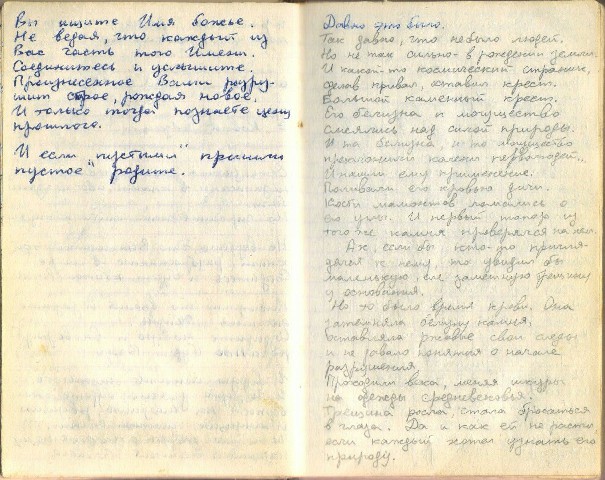 Вы ищите Имя божье.
Не ведая, что каждый из
Вас часть того Имени.
Соединитесь и услышите.
Произнесённое Вами разру-
шит старое, рождая новое.
И только тогда познаете цену
прошлого.
И если "пустыми" пришли
пустое родите.
Давно это было.
Так давно, что небыло людей.
Но не так сильно в рождении земли.
И какой-то космический странник,
делав привал, оставил крест.
Большой каменный крест.
Его белизна и могущество
смеялись над силой природы.
И на белизну, и то могущество
колени перволюдей.
И нашли ему применение.
Поливали его кровью дичи.
Кости мамонтов ломались о
его углы. И первый топор из
того же камня проверялся на нём.
Ах, если бы кто-то пригля-
делся к нему, то увидел бы
маленькую, еле заметную трещину
у основания.
Но то было время крови. Она
затемняла белизну камня,
оставляла ржавые свои следы
и не давала понятия о начале
разрушения.
Проходили века, меняя шкуры
на одежды средневековья.
Трещина росла, стала бросаться
в глаза. Да и как ей не расти
если каждый хотел узнать его
природу.